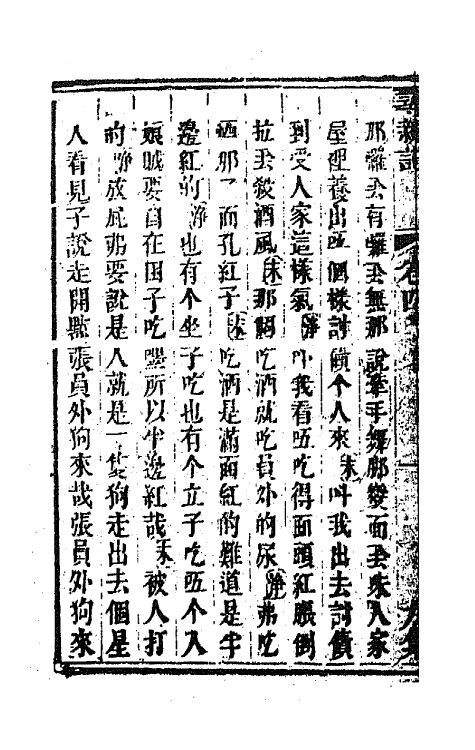 那囉㑒有囉㑒無那說牽手舞脚變面㑒來人家
屋裡養出個樣討債个人來末叫我出去討債
到受人家這樣氣淨我看吃得面頭紅脹倒
拉㑒發酒風末那個吃酒就吃員外的尿淨弗吃
酒那面孔紅子末吃酒是滿面紅的難道是半
邊紅的淨也有个坐子吃也有个立子吃个入
娘賊要自在田子吃所以半邊紅哉末被人打
的淨放屁弗要說是人就是一隻狗走出去個星
人看見子說走開點張員外狗來哉張員外狗來
卷四